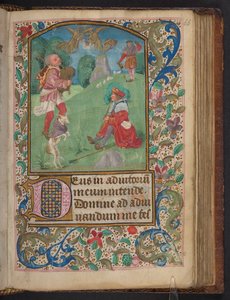 Deus in adiutoriū
meum intende.
Domine ad adiu
uandum me fes